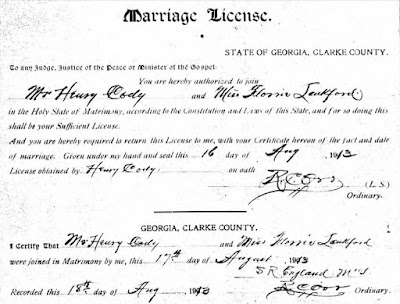 Marriage License.
STATE OF GEORGIA, CLARKE COUNTY.
To any Judge, Justice of the Peace or Minister of the Gospel:
You are hereby authorized to join
Mr Henry Cody and Miss Florrie Lankford
in the Holy State of Matrimony, according to the Constitution and Laws of this State, and for so doing this
shall be your Sufficient License.
And you are hereby required to return this License to me, with your Certificate hereon of the fact and date
of marriage. Given under my hand and seal this 16 day of Aug 1913
License obtained by Henry Cody. on oath R C Orr (L. S.)
Ordinary.
GEORGIA, CLARKE COUNTY.
I Certify That Mr Henry Cody and Miss Florrie Lankford
were joined in Matrimony by me, this 17th day of August 1913
S R England
Recorded this 18th day of Aug 1913 R C Orr
Ordinary.